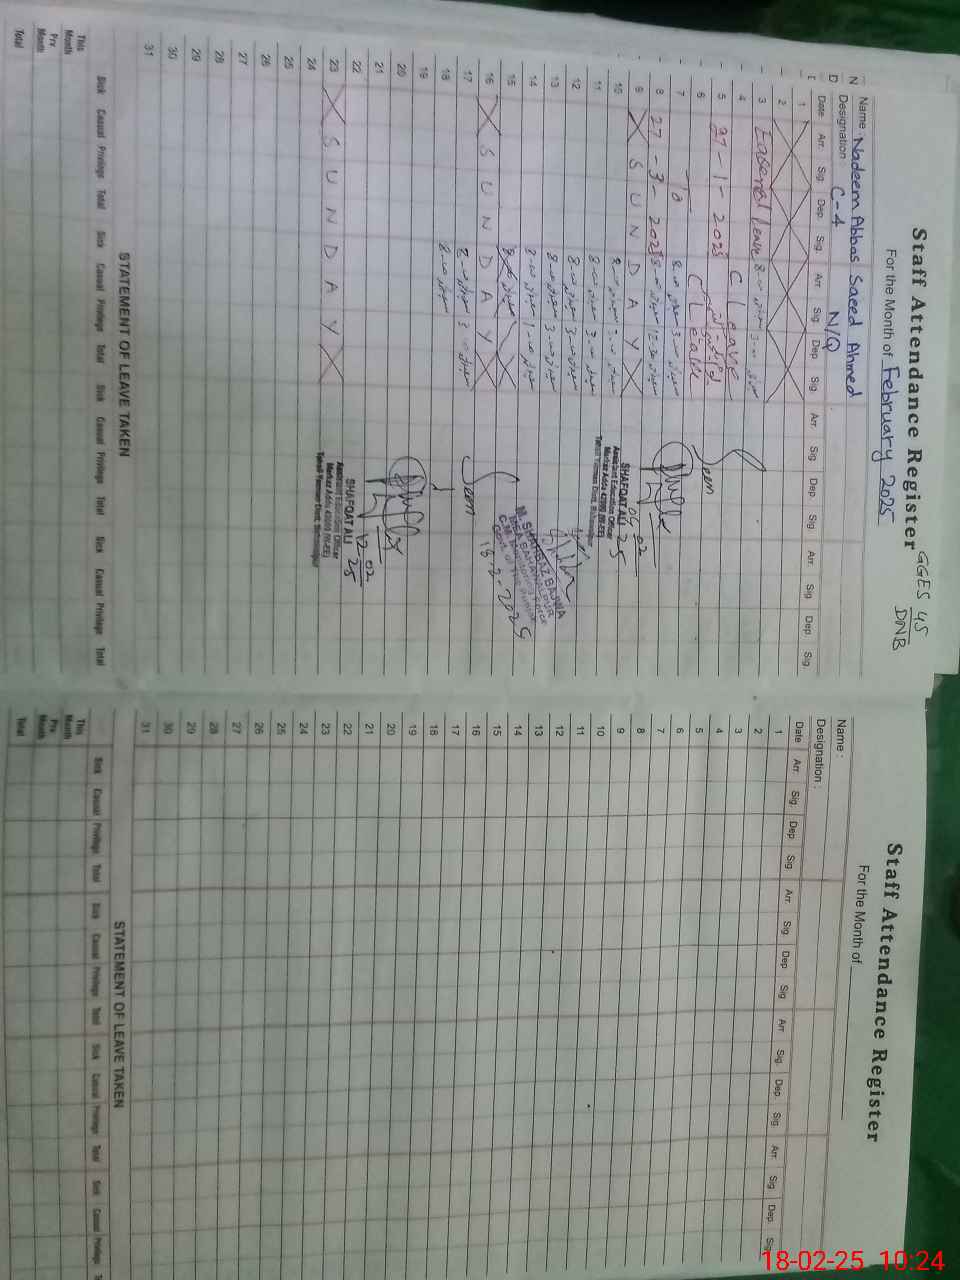 Staff Attendance Register
GGES 45
DNB
For the Month of February 2025
Name : Nadeem Abbas Saeed Ahmed
Designation : C-4 N/Q
Date Arr. Sig. Dep. Sig. Arr Sig. Dep Sig. Arr. Sig. Dep. Sig. Arr. Sig. Dep Sig.
1
2
3 Earened leave 8-00 3-00
4
5 27-1-2025 C Leave
6 C Leave
7 To 8-00 3-00
8 27-3-2025 8-00 12-30
9 S U N D A Y
10 8-00 3-00
11 8-00 3-00
12 8-00 3-00
13 8-00 3-00
14 8-00 1-00
15
16 S U N D A Y
17 8-00 3-00
18 8-00
19
20
21
22
23 S U N D A Y
24
25
26
27
28
29
30
31
Seen
04-02-25
SHAFQAT ALI
Assistant Education Officer
Markaz Adda 43000 (M-EE)
Tehsil Yazman Distt. Bahawalpur
M. SHAHBAZ BAJWA
MEA BAHAWALPUR
C.M. Monitoring Force
Govt. of The Punjab
18-2-2025
Seen
12-02-25
SHAFQAT ALI
Assistant Education Officer
Markaz Adda 43000 (M-EE)
Tehsil Yazman Distt. Bahawalpur
STATEMENT OF LEAVE TAKEN
Sick Casual Privilege Total Sick Casual Privilege Total Sick Casual Privilege Total Sick Casual Privilege Total
This Month
Prv. Month
Total
Staff Attendance Register
For the Month of
Name :
Designation :
Date Arr. Sig. Dep Sig. Arr. Sig. Dep Sig. Arr Sig. Dep. Sig. Arr. Sig. Dep. Sig.
1
2
3
4
5
6
7
8
9
10
11
12
13
14
15
16
17
18
19
20
21
22
23
24
25
26
27
28
29
30
31
STATEMENT OF LEAVE TAKEN
Sick Casual Privilege Total Sick Casual Privilege Total Sick Casual Privilege Total Sick Casual Privilege
This Month
Prv. Month
Total
18-02-25 10:24